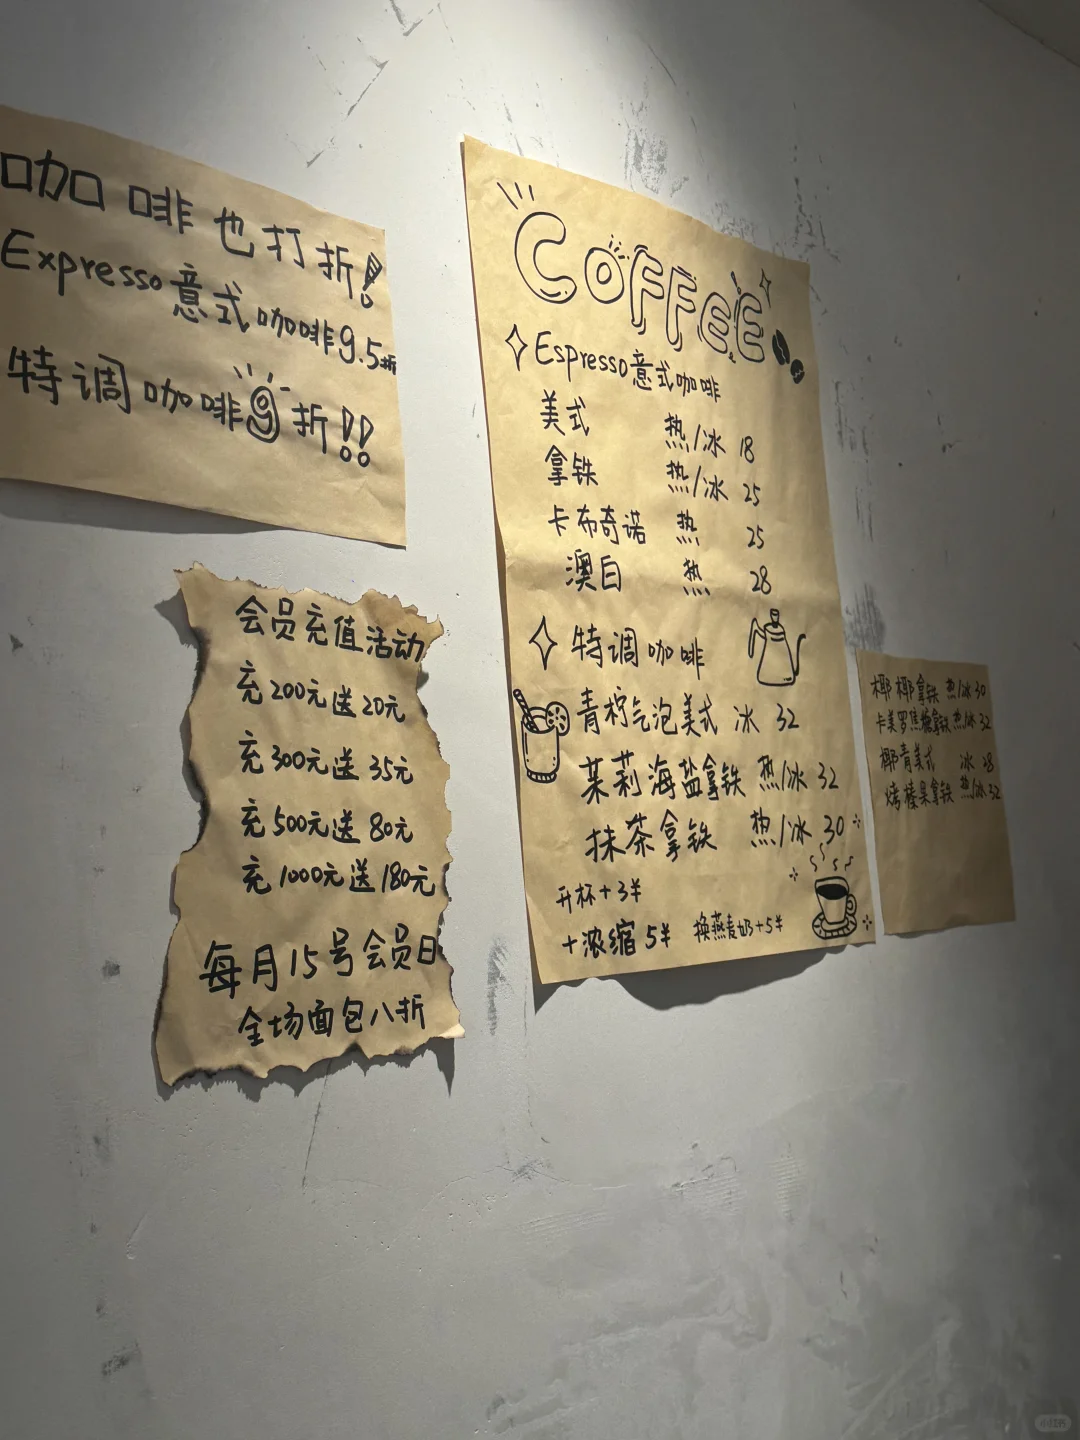 咖啡也打折!
Expresso意式咖啡9.5折
特调咖啡9折!!
会员充值活动
充200元送20元
充300元送35元
充500元送80元
充1000元送180元
每月15号会员日
全场面包八折
COFFEE
Espresso意式咖啡
美式 热/冰 18
拿铁 热/冰 25
卡布奇诺 热 25
澳白 热 28
特调咖啡
青柠气泡美式 冰 32
茉莉海盐拿铁 热/冰 32
抹茶拿铁 热/冰 30
升杯+3¥
+浓缩5¥ 换燕麦奶+5¥
椰椰拿铁 热/冰 30
卡美罗焦糖拿铁 热/冰 32
椰青美式 冰 28
烤榛果拿铁 热/冰 32
小红书